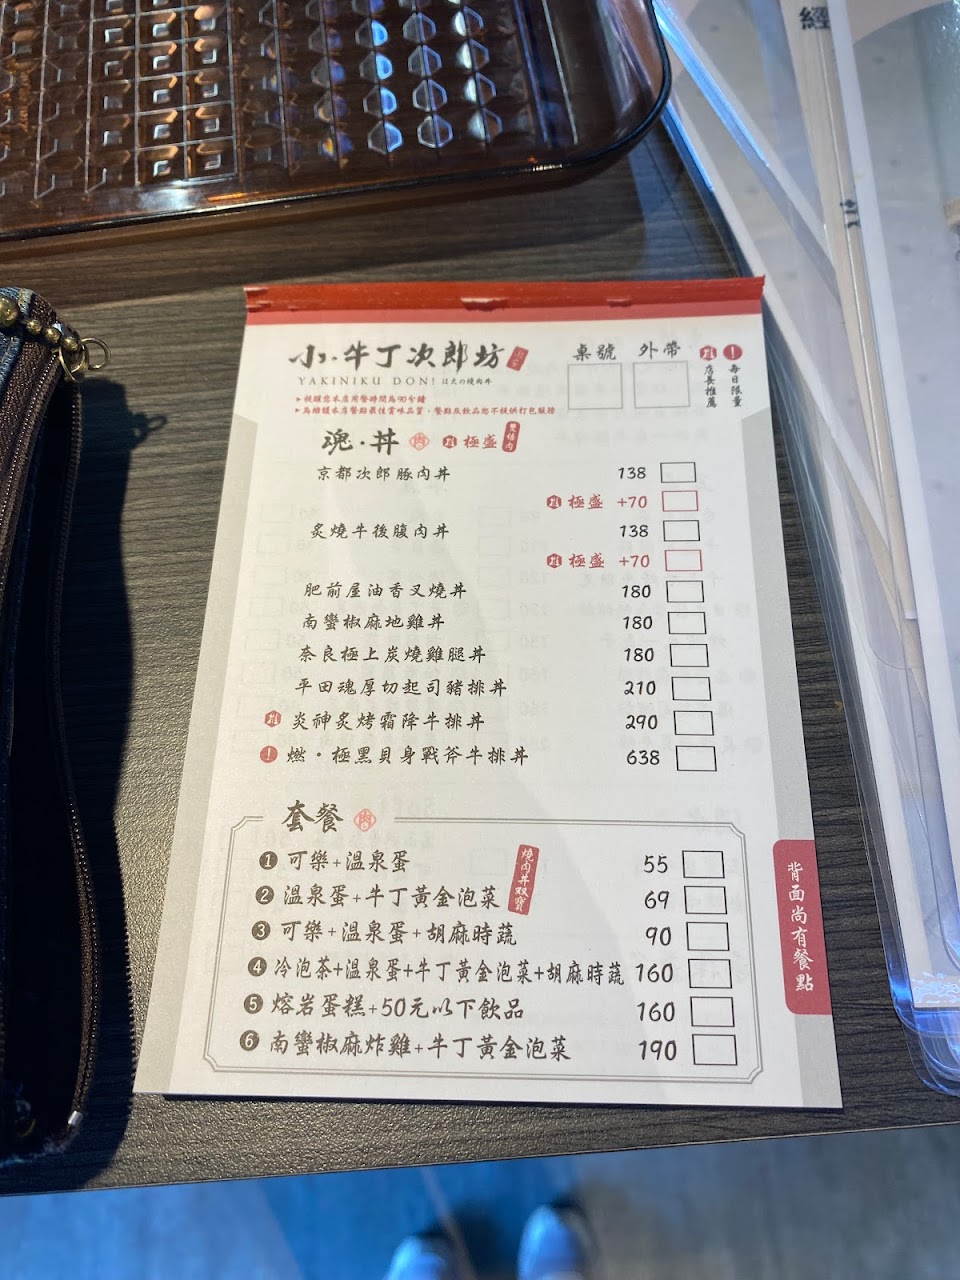 經
小·牛丁次郎坊 燒肉丼
YAKINIKU DON! は大の燒肉丼
桌號 外帶
店長推薦
每日限量
▸提醒您本店用餐時間為90分鐘
▸為維護本店餐點最佳賞味品質，餐點及飲品恕不提供打包服務
魂·丼 肉 極盛 雙倍肉
京都次郎豚肉丼 138
極盛 +70
炙燒牛後腹肉丼 138
極盛 +70
肥前屋油香叉燒丼 180
南蠻椒麻地雞丼 180
奈良極上炭燒雞腿丼 180
平田魂厚切起司豬排丼 210
炎神炙烤霜降牛排丼 290
! 燃·極黑貝身戰斧牛排丼 638
套餐 肉
燒肉丼双寶
1 可樂+溫泉蛋 55
2 溫泉蛋+牛丁黃金泡菜 69
3 可樂+溫泉蛋+胡麻時蔬 90
4 冷泡茶+溫泉蛋+牛丁黃金泡菜+胡麻時蔬 160
5 熔岩蛋糕+50元以下飲品 160
6 南蠻椒麻炸雞+牛丁黃金泡菜 190
背面尚有餐點